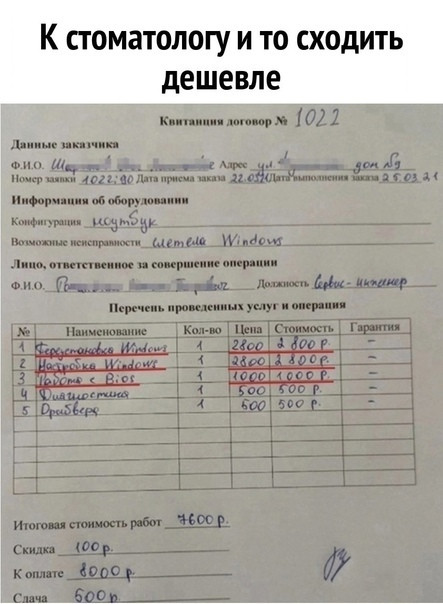 К стоматологу и то сходить
дешевле
Квитанция договор № 1022
Данные заказчика
Ф.И.О. Адрес ул дом
Номер заявки 1022 Дата приема заказа Дата выполнения заказа 25.03.21
Информация об оборудовании
Конфигурация ноутбук
Возможные неисправности слетела Windows
Лицо, ответственное за совершение операции
Ф.И.О. Должность Сервис-инженер
Перечень проведенных услуг и операция
№ Наименование Кол-во Цена Стоимость Гарантия
1 Переустановка Windows 1 2800 2800р. -
2 Настройка Windows 1 2800 2800р. -
3 Работа с Bios 1 1000 1000р. -
4 Диагностика 1 500 500р. -
5 Драйвера 1 500 500р. -
Итоговая стоимость работ 7600р.
Скидка 100р.
К оплате 8000р
Сдача 500р.